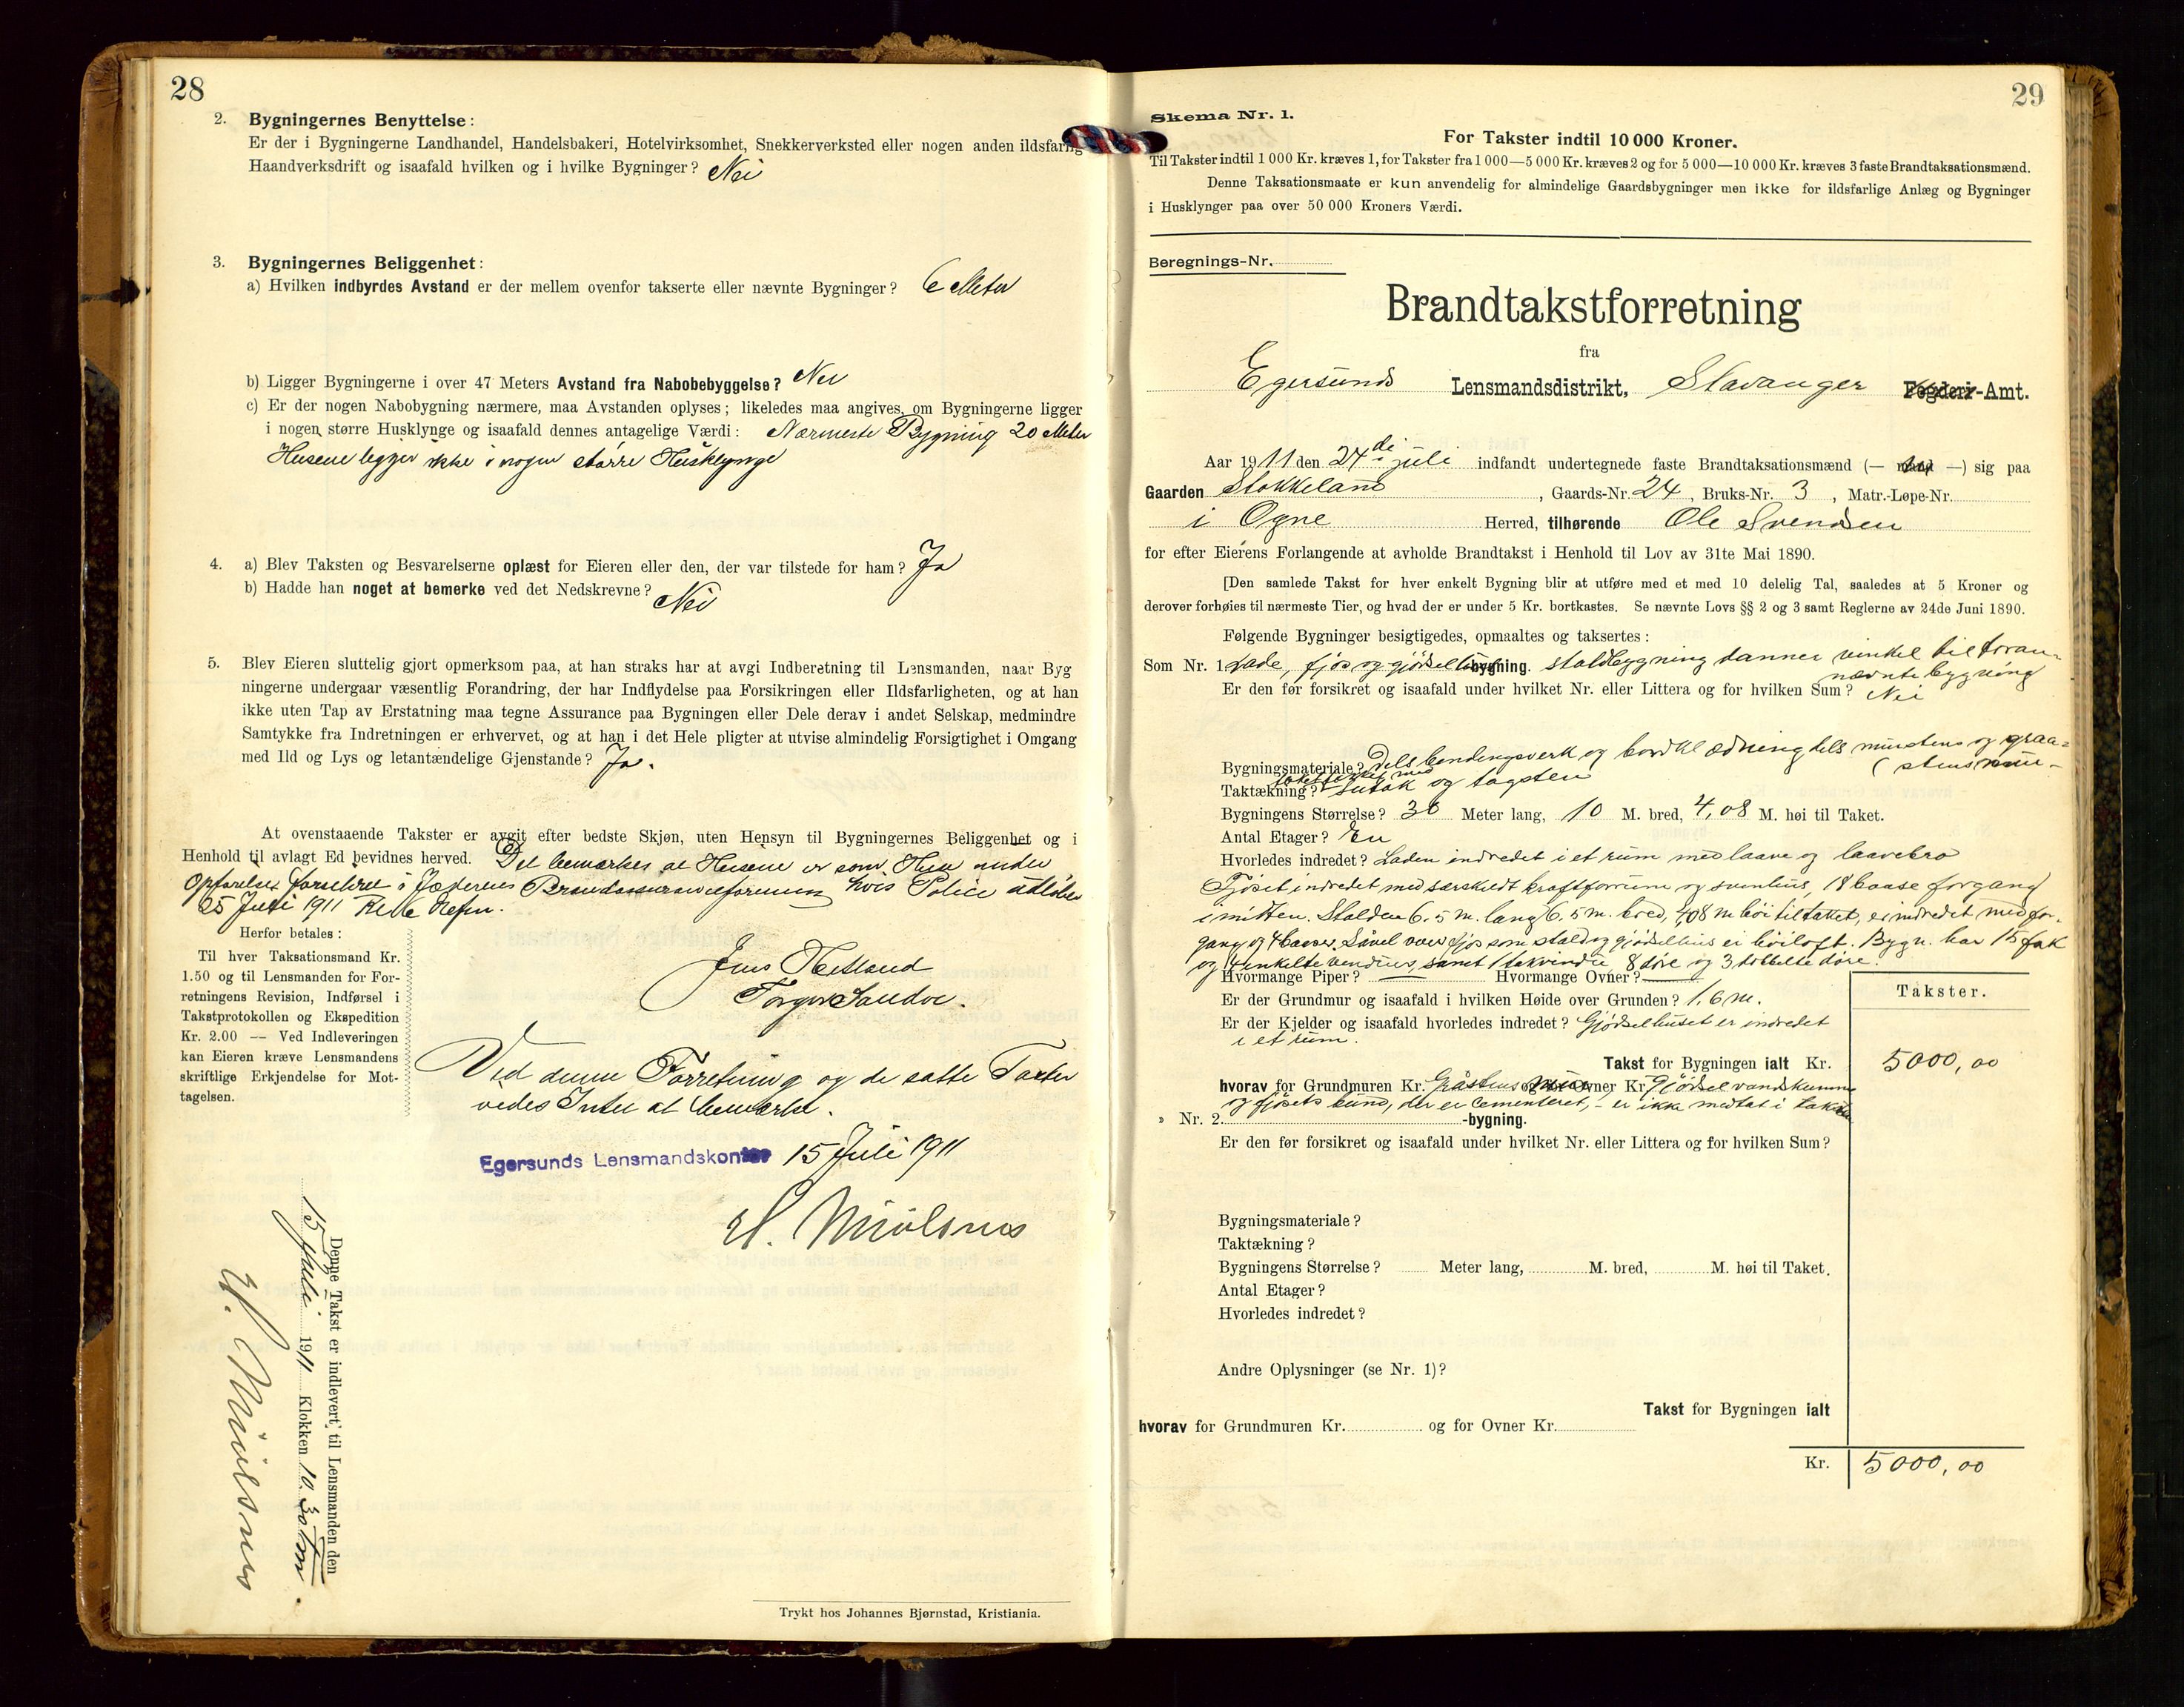 28
2. Bygningernes Benyttelse:
Er der i Bygningerne Landhandel, Handelsbakeri, Hotelvirksomhet, Snekkerverksted eller nogen anden ildsfarlig
Haandverksdrift og isaafald hvilken og i hvilke Bygninger? Nei
3. Bygningernes Beliggenhet:
a) Hvilken indbyrdes Avstand er der mellem ovenfor takserte eller nævnte Bygninger? 6 Meter
b) Ligger Bygningerne i over 47 Meters Avstand fra Nabobebyggelse? Nei
c) Er der nogen Nabobygning nærmere, maa Avstanden oplyses; likeledes maa angives, om Bygningerne ligger
i nogen større Husklynge og isaafald dennes antagelige Værdi: Nærmeste Bygning 20 Meter
Husene ligger ikke i nogen større Husklynge
4. a) Blev Taksten og Besvarelserne oplæst for Eieren eller den, der var tilstede for ham? Ja
b) Hadde han noget at bemerke ved det Nedskrevne? Nei
5. Blev Eieren sluttelig gjort opmerksom paa, at han straks har at avgi Indberetning til Lensmanden, naar Byg
ningerne undergaar væsentlig Forandring, der har Indflydelse paa Forsikringen eller Ildsfarligheten, og at han
ikke uten Tap av Erstatning maa tegne Assurance paa Bygningen eller Dele derav i andet Selskap, medmindre
Samtykke fra Indretningen er erhvervet, og at han i det Hele pligter at utvise almindelig Forsigtighet i Omgang
med Ild og Lys og letantændelige Gjenstande? Ja.
At ovenstaaende Takster er avgit efter bedste Skjøn, uten Hensyn til Bygningernes Beliggenhet og i
Henhold til avlagt Ed bevidnes herved. Det bemærkes at Husene er som Hus under
Opførelse forsikret i Jæderens Brandassuranceforening hvis Police udløber
25 Juli 1911
Herfor betales:
Til hver Taksationsmand Kr.
1.50 og til Lensmanden for For-
retningens Revision, Indførsel i
Takstprotokollen og Ekspedition
Kr. 2.00 — Ved Indleveringen
kan Eieren kræve Lensmandens
skriftlige Erkjendelse for Mot-
tagelsen.
Jens Hetland
Torger Sandve.
Ved denne Forretning og de satte Takster
vedes Intet at bemærke.
Egersunds Lensmandskontor 15 Juli 1911
Denne Takst er indlevert til Lensmanden den
15 Juli 1911 Klokken 10.30 Fm.
Trykt hos Johannes Bjørnstad, Kristiania.
29
Skema Nr. 1.
For Takster indtil 10 000 Kroner.
Til Takster indtil 1 000 Kr. kræves 1, for Takster fra 1 000—5 000 Kr. kræves 2 og for 5 000—10 000 Kr. kræves 3 faste Brandtaksationsmænd.
Denne Taksationsmaate er kun anvendelig for almindelige Gaardsbygninger men ikke for ildsfarlige Anlæg og Bygninger
i Husklynger paa over 50 000 Kroners Værdi.
Beregnings-Nr.
Brandtakstforretning
fra
Egersunds Lensmandsdistrikt, Stavanger Fogderi-Amt.
Aar 1911 den 24de juli indfandt undertegnede faste Brandtaksationsmænd (— mand —) sig paa
Gaarden Stokkeland, Gaards-Nr. 24, Bruks-Nr. 3, Matr.-Løpe-Nr.
i Ogne Herred, tilhørende Ole Svendsen
for efter Eierens Forlangende at avholde Brandtakst i Henhold til Lov av 31te Mai 1890.
[Den samlede Takst for hver enkelt Bygning blir at utføre med et med 10 delelig Tal, saaledes at 5 Kroner og
derover forhøies til nærmeste Tier, og hvad der er under 5 Kr. bortkastes. Se nævnte Lovs §§ 2 og 3 samt Reglerne av 24de Juni 1890.
Følgende Bygninger besigtigedes, opmaaltes og taksertes:
Som Nr. 1 Lade, fjøs og gjødselhus-bygning. staldbygning danner vinkel til foran-
nævnte bygning
Er den før forsikret og isaafald under hvilket Nr. eller Littera og for hvilken Sum? Nei
Bygningsmateriale? Dels bendingsverk og bordklædning dels murstens og graa-
(stensmur
Taktækning? sutak og tagsten
Bygningens Størrelse? 30 Meter lang, 10 M. bred, 4,08 M. høi til Taket.
Antal Etager? En
Hvorledes indredet? Laden indredet i et rum med laave og laavebro
Fjøset indredet med særskildt kraftforrum og svinhus, 18 baase forgang
i midten. Stalden 6.5 m. lang 6.5 m. bred, 4,08 m høi til tattet, er indredet med for-
gang og 4 baaser. Såvel over fjøs som stald og gjødselhus er høiloft. Bygn. har 15 fak
og 4 enkelte vinduer, samt 1 takvindu 8 døre og 3 dobbelte døre.
Hvormange Piper? — Hvormange Ovner? —
Er der Grundmur og isaafald i hvilken Høide over Grunden? 1,6 m.
Er der Kjelder og isaafald hvorledes indredet? Gjødselhuset er indredet
i et rum.
Takster.
Takst for Bygningen ialt Kr. 5000,00
hvorav for Grundmuren Kr. Gråstens mur og for Ovner Kr. Gjødselvandskumme
og fjøsets bund, der er cementeret, – er ikke medtat i taksten
» Nr. 2. -bygning.
Er den før forsikret og isaafald under hvilket Nr. eller Littera og for hvilken Sum?
Bygningsmateriale?
Taktækning?
Bygningens Størrelse? Meter lang, M. bred, M. høi til Taket.
Antal Etager?
Hvorledes indredet?
Andre Oplysninger (se Nr. 1)?
Takst for Bygningen ialt
hvorav for Grundmuren Kr. og for Ovner Kr.
Kr. 5000,00